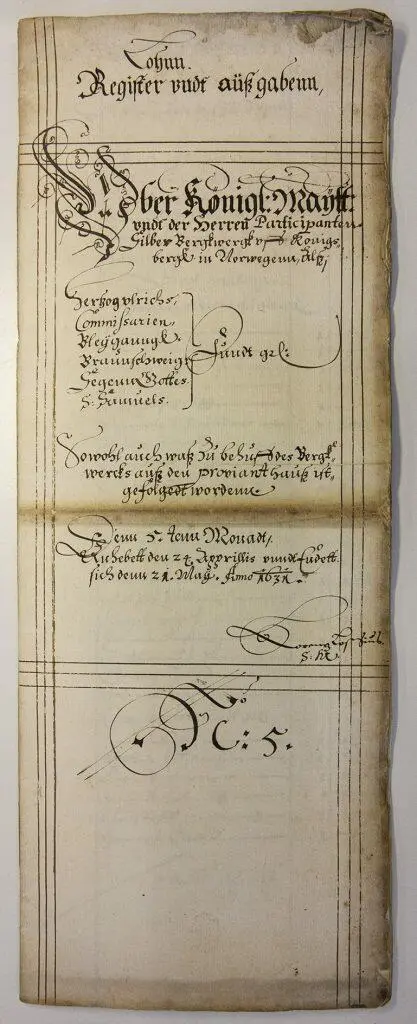 Lohnn.
Register vndt außgabenn,
Vber Königl: Maÿtt:
vndt der Herren Participanten
Silber Bergkwergk vf Königs-
bergk in Norwegenn, Alß,
Hertzog vlrichs,
Commissarien,
Bleyganngk.
Braunschweig
Segenn Gottes
S: Samuels.
Fundt gr:
Sowohl auch waß zu behuf des Bergk-
wercks auß den proviant hauß ist
gefolgedt wordenn.
Denn 5. tenn Monadt,
Anhebett den 24 Apprillis vnndt Endett
sich denn 21. May. Anno 1631.
S:
No: 5.